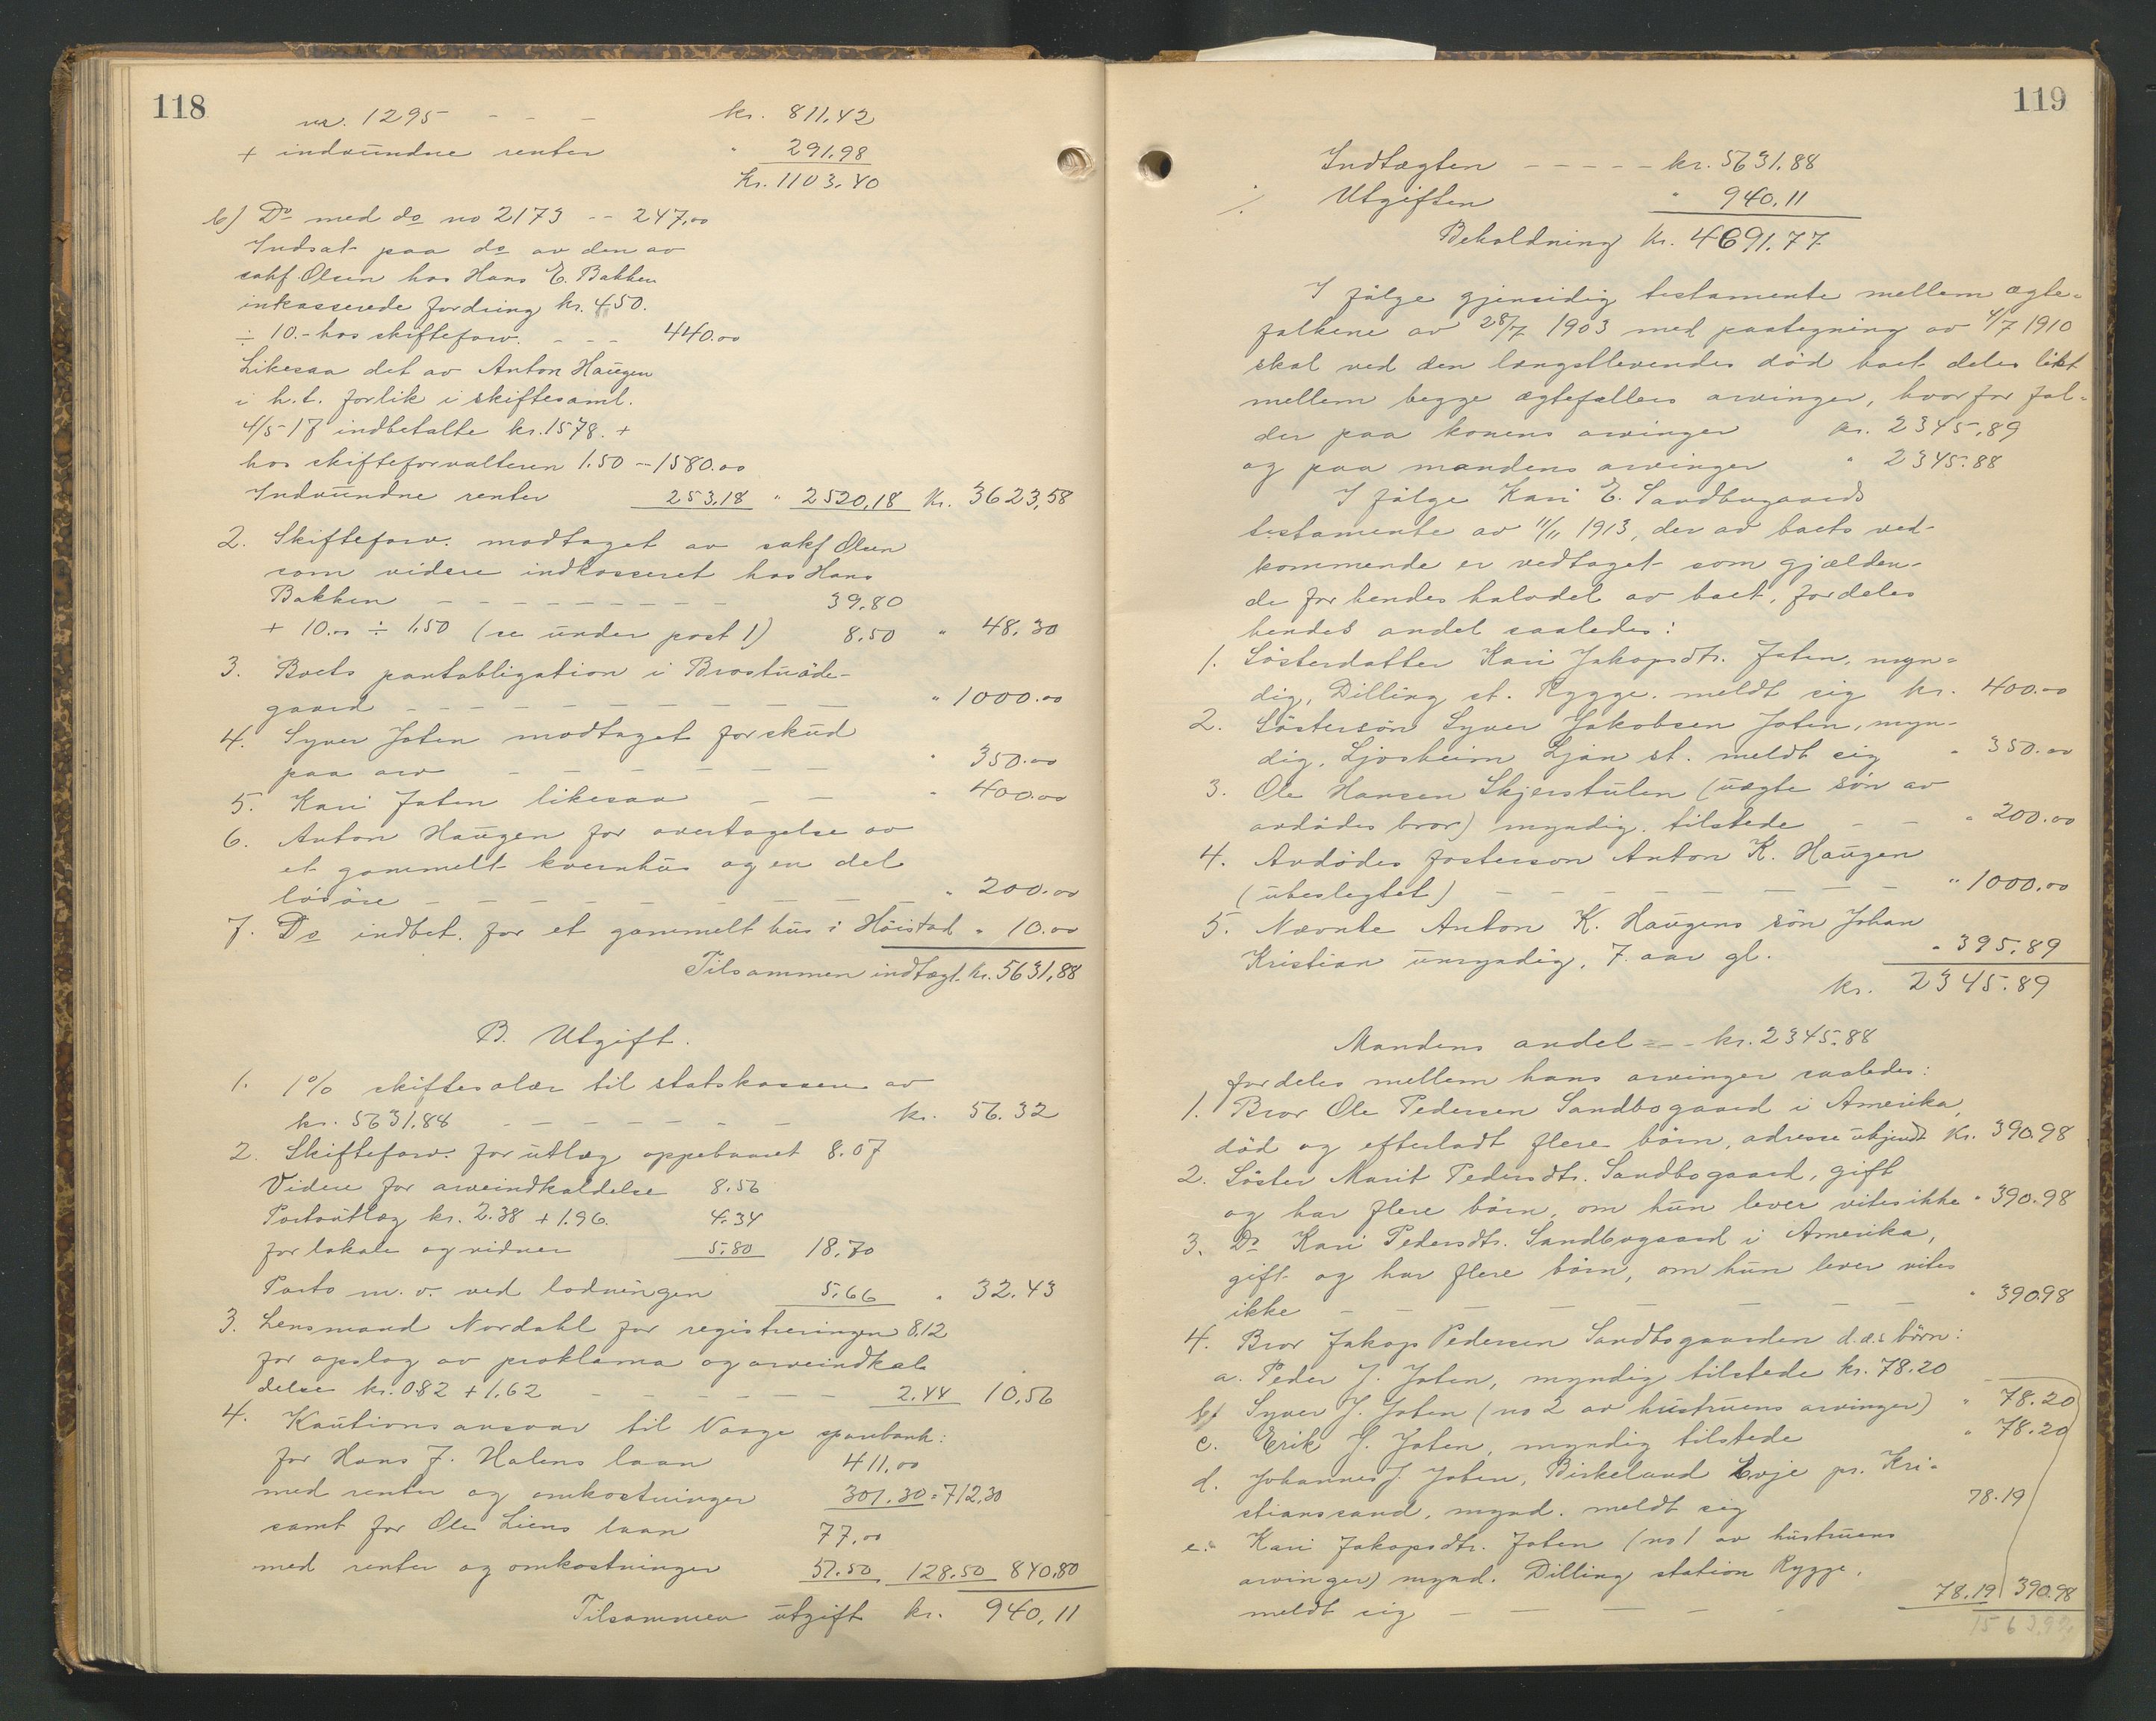 118
nr. 1295 - - - kr. 811.42
+ indvundne renter " 291.98
Kr. 1103.40
b) Do med do no 2173 -- 247.00
Indsat paa do av den av
sakf. Olsen hos Hans E. Bakken
inkasserede fordring kr. 450.
÷ 10.- hos skifteforv. - - - 440.00
Likesaa det av Anton Haugen
i h.t. forlik i skiftesaml.
4/5-17 indbetalte kr. 1578. +
hos skifteforvalteren 1.50 - 1580.00
Indvundne renter 253,18 " 2520,18 Kr. 3623,58
2. Skifteforv. modtaget av sakf Olsen
som videre indkasseret hos Hans
Bakken - - - - - - - - - 39,80
+ 10.00 ÷ 1,50 (se under post 1) 8.50 " 48,30
3. Boets pantobligation i Brostuöde-
gaard - - - - - - - - - - - " 1000.00
4. Syver Joten modtaget forskud
paa arv - - - - - - - " 350.00
5. Kari Joten likesaa - - " 400.00
6. Anton Haugen for overtagelse av
et gammelt kvernhus og en del
lösöre - - - - - - - - - " 200.00
7. Do indbet. for et gammelt hus i Höistad " 10.00
Tilsammen indtægt kr. 5631,88
B. Utgift.
1. 1% skiftesalær til statskassen av
kr. 5631.88 - - - - - - - kr. 56.32
2. Skifteforv. for utlæg oppebaaret 8.07
Videre for arveindkaldelse 8.56
Portoutlæg kr. 2.38 + 1.96. 4.34
for lokale og vidner 5.80 18.70
Porto m. v. ved lodningen 5.66 " 32.43
3. Lensmand Nordahl for registreringen 8,12
for opslag av proklama og arveindkal
delse kr. 0.82 + 1.62 - - - - - - 2.44 10,56
4. Kautionsansvar til Vaage sparebank:
for Hans J. Halens laan 411,00
med renter og omkostninger 301.30 = 712,30
samt for Ole Liens laan 77,00
med renter og omkostninger 51.50 128.50 840,80
Tilsammen utgift kr. 940,11
119
Indtægten - - - - - kr. 5631.88
./. Utgiften " 940.11
Beholdning kr. 4691.77
I fölge gjensidig testamente mellem ægte-
folkene av 28/7 1903 med paategning av 4/7 1910
skal ved den længstlevendes död boet deles likt
mellem begge ægtefællers arvinger, hvorfor fal-
der paa konens arvinger kr. 2345,89
og paa mandens arvinger " 2345.88
I fölge Kari E. Sandbogaards
testamente av 11/11 1913, der av boets ved-
kommende er vedtaget som gjælden-
de for hendes halvdel av boet, fordeles
hendes andel saaledes:
1. Sösterdatter Kari Jakopsdtr. Joten, myn-
dig, Dilling st. Rygge. meldt sig kr. 400.00
2. Söstersön Syver Jakobsen Joten, myn-
dig, Ljosheim Ljan st. meldt sig " 350.00
3. Ole Hansen Skjerstulen (uægte sön av
avdödes bror) myndig. tilstede - - " 200.00
4. Avdödes fosterson Anton K. Haugen
(ubeslegtet) - - - - - - - - " 1000.00
5. Nævnte Anton K. Haugens sön Johan
Kristian umyndig, 7. aar gl. " 395,89
kr. 2345.89
Mandens andel - - kr. 2345.88
fordeles mellem hans arvinger saaledes:
1. Bror Ole Pedersen Sandbogaard i Amerika,
död og efterladt flere börn, adresse ukjendt Kr. 390.98
2. Söster Marit Pedersdtr. Sandbogaard, gift
og har flere börn, om hun lever vites ikke " 390.98
3. Do Kari Pedersdtr. Sandbogaard i Amerika,
gift og har flere börn, om hun lever vites
ikke - - - - - - - - - " 390.98
4. Bror Jakop Pedersen Sandbogaarden d.æ.s börn:
a. Peder J. Joten, myndig tilstede kr. 78.20
b. Syver J. Joten (no 2 av hustruens arvinger) " 78.20
c. Erik J. Joten, myndig tilstede " 78.20
d. Johannes J. Joten, Birkeland Evje pr. Kri-
stianssand, mynd. meldt sig 78.19
e. Kari Jakopsdtr. Joten (no 1 av hustruens
arvinger) mynd. Dilling station Rygge,
meldt sig - - - - - 78.19 390.98
1563.92